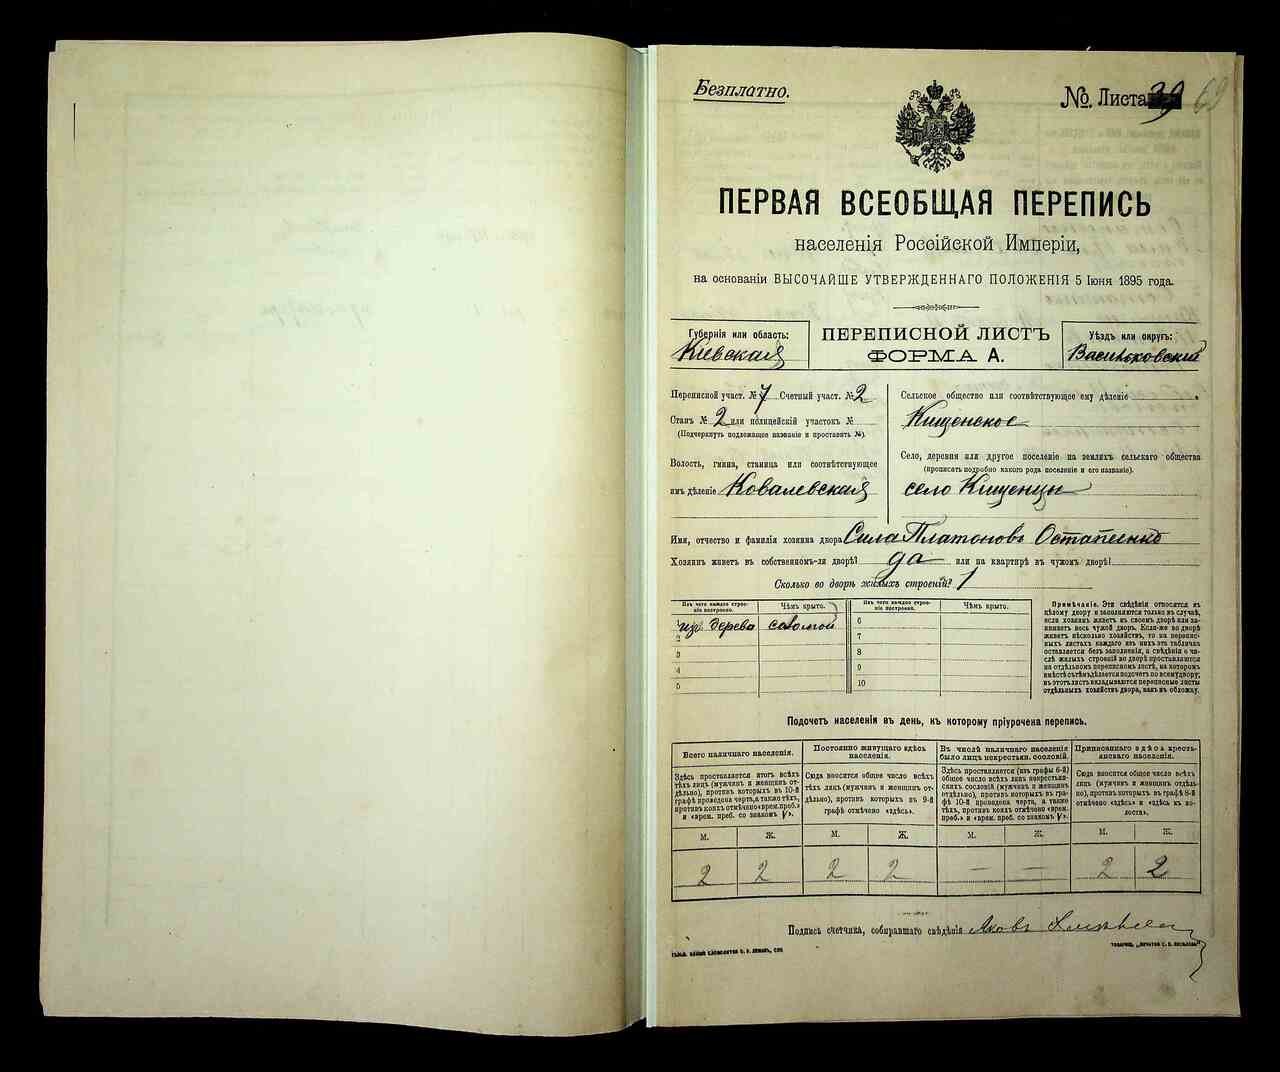 Безплатно.
№ Листа 39 69
ПЕРВАЯ ВСЕОБЩАЯ ПЕРЕПИСЬ
населенія Россійской Имперіи,
на основаніи ВЫСОЧАЙШЕ УТВЕРЖДЕННАГО ПОЛОЖЕНІЯ 5 Іюня 1895 года.
Губернія или область:
Кіевская
ПЕРЕПИСНОЙ ЛИСТЪ
ФОРМА А.
Уѣздъ или округъ:
Васильковскій
Переписной участ. № 7 Счетный участ. № 2
Станъ № 2 или полицейскій участокъ №
(Подчеркнуть подлежащее названіе и проставить №).
Волость, гмина, станица или соотвѣтствующее
имъ дѣленіе Ковалевская
Сельское общество или соотвѣтствующее ему дѣленіе
Кищенское
Село, деревня или другое поселеніе на земляхъ сельскаго общества
(прописать подробно какого рода поселеніе и его названіе).
село Кищенцы
Имя, отчество и фамилія хозяина двора Сила Платоновъ Остапенко
Хозяинъ живетъ въ собственномъ-ли дворѣ? да или на квартирѣ въ чужомъ дворѣ?
Сколько во дворѣ жилыхъ строеній? 1
Изъ чего каждое строеніе построено.
Чѣмъ крыто.
Изъ чего каждое строеніе построено.
Чѣмъ крыто.
1 изъ дерева соломой
2
3
4
5
6
7
8
9
10
Примѣчаніе. Эти свѣдѣнія относятся къ
цѣлому двору и заполняются только въ случаѣ,
если хозяинъ живетъ въ своемъ дворѣ или занимаетъ
весь чужой дворъ. Если-же во дворѣ
живетъ нѣсколько хозяйствъ, то на переписныхъ
листахъ каждаго изъ нихъ эта табличка
оставляется безъ заполненія, а свѣдѣнія о числѣ
жилыхъ строеній во дворѣ проставляются
на отдѣльномъ переписномъ листѣ, на которомъ
вмѣстѣ съ тѣмъ дѣлается подсчетъ по всему двору;
въ этотъ листъ вкладываются переписные листы
отдѣльныхъ хозяйствъ двора, какъ въ обложку.
Подсчетъ населенія въ день, къ которому пріурочена перепись.
Всего наличнаго населенія.
Здѣсь проставляется итогъ всѣхъ
тѣхъ лицъ (мужчинъ и женщинъ отдѣльно),
противъ которыхъ въ 10-й
графѣ проведена черта, а также тѣхъ,
противъ коихъ отмѣчено «врем. преб.»
и «врем. преб. со знакомъ V».
М. Ж.
2 2
Постоянно живущаго здѣсь населенія.
Сюда вносится общее число всѣхъ
тѣхъ лицъ (мужчинъ и женщинъ отдѣльно),
противъ которыхъ въ 9-й
графѣ отмѣчено «здѣсь».
М. Ж.
2 2
Въ числѣ наличнаго населенія было лицъ некрестьян. сословій.
Здѣсь проставляется (изъ графы 6-й)
общее число всѣхъ лицъ некрестьянскихъ
сословій (мужчинъ и женщинъ
отдѣльно), противъ которыхъ въ графѣ
10-й проведена черта, а также
тѣхъ, противъ коихъ отмѣчено «врем.
преб.» и «врем. преб. со знакомъ V».
М. Ж.
— —
Приписаннаго здѣсь крестьянскаго населенія.
Сюда вносится общее число всѣхъ
лицъ (мужчинъ и женщинъ отдѣльно),
противъ которыхъ въ графѣ 8-й
отмѣчено «здѣсь» и «здѣсь къ волости».
М. Ж.
2 2
Подпись счетчика, собиравшаго свѣдѣнія Яковъ